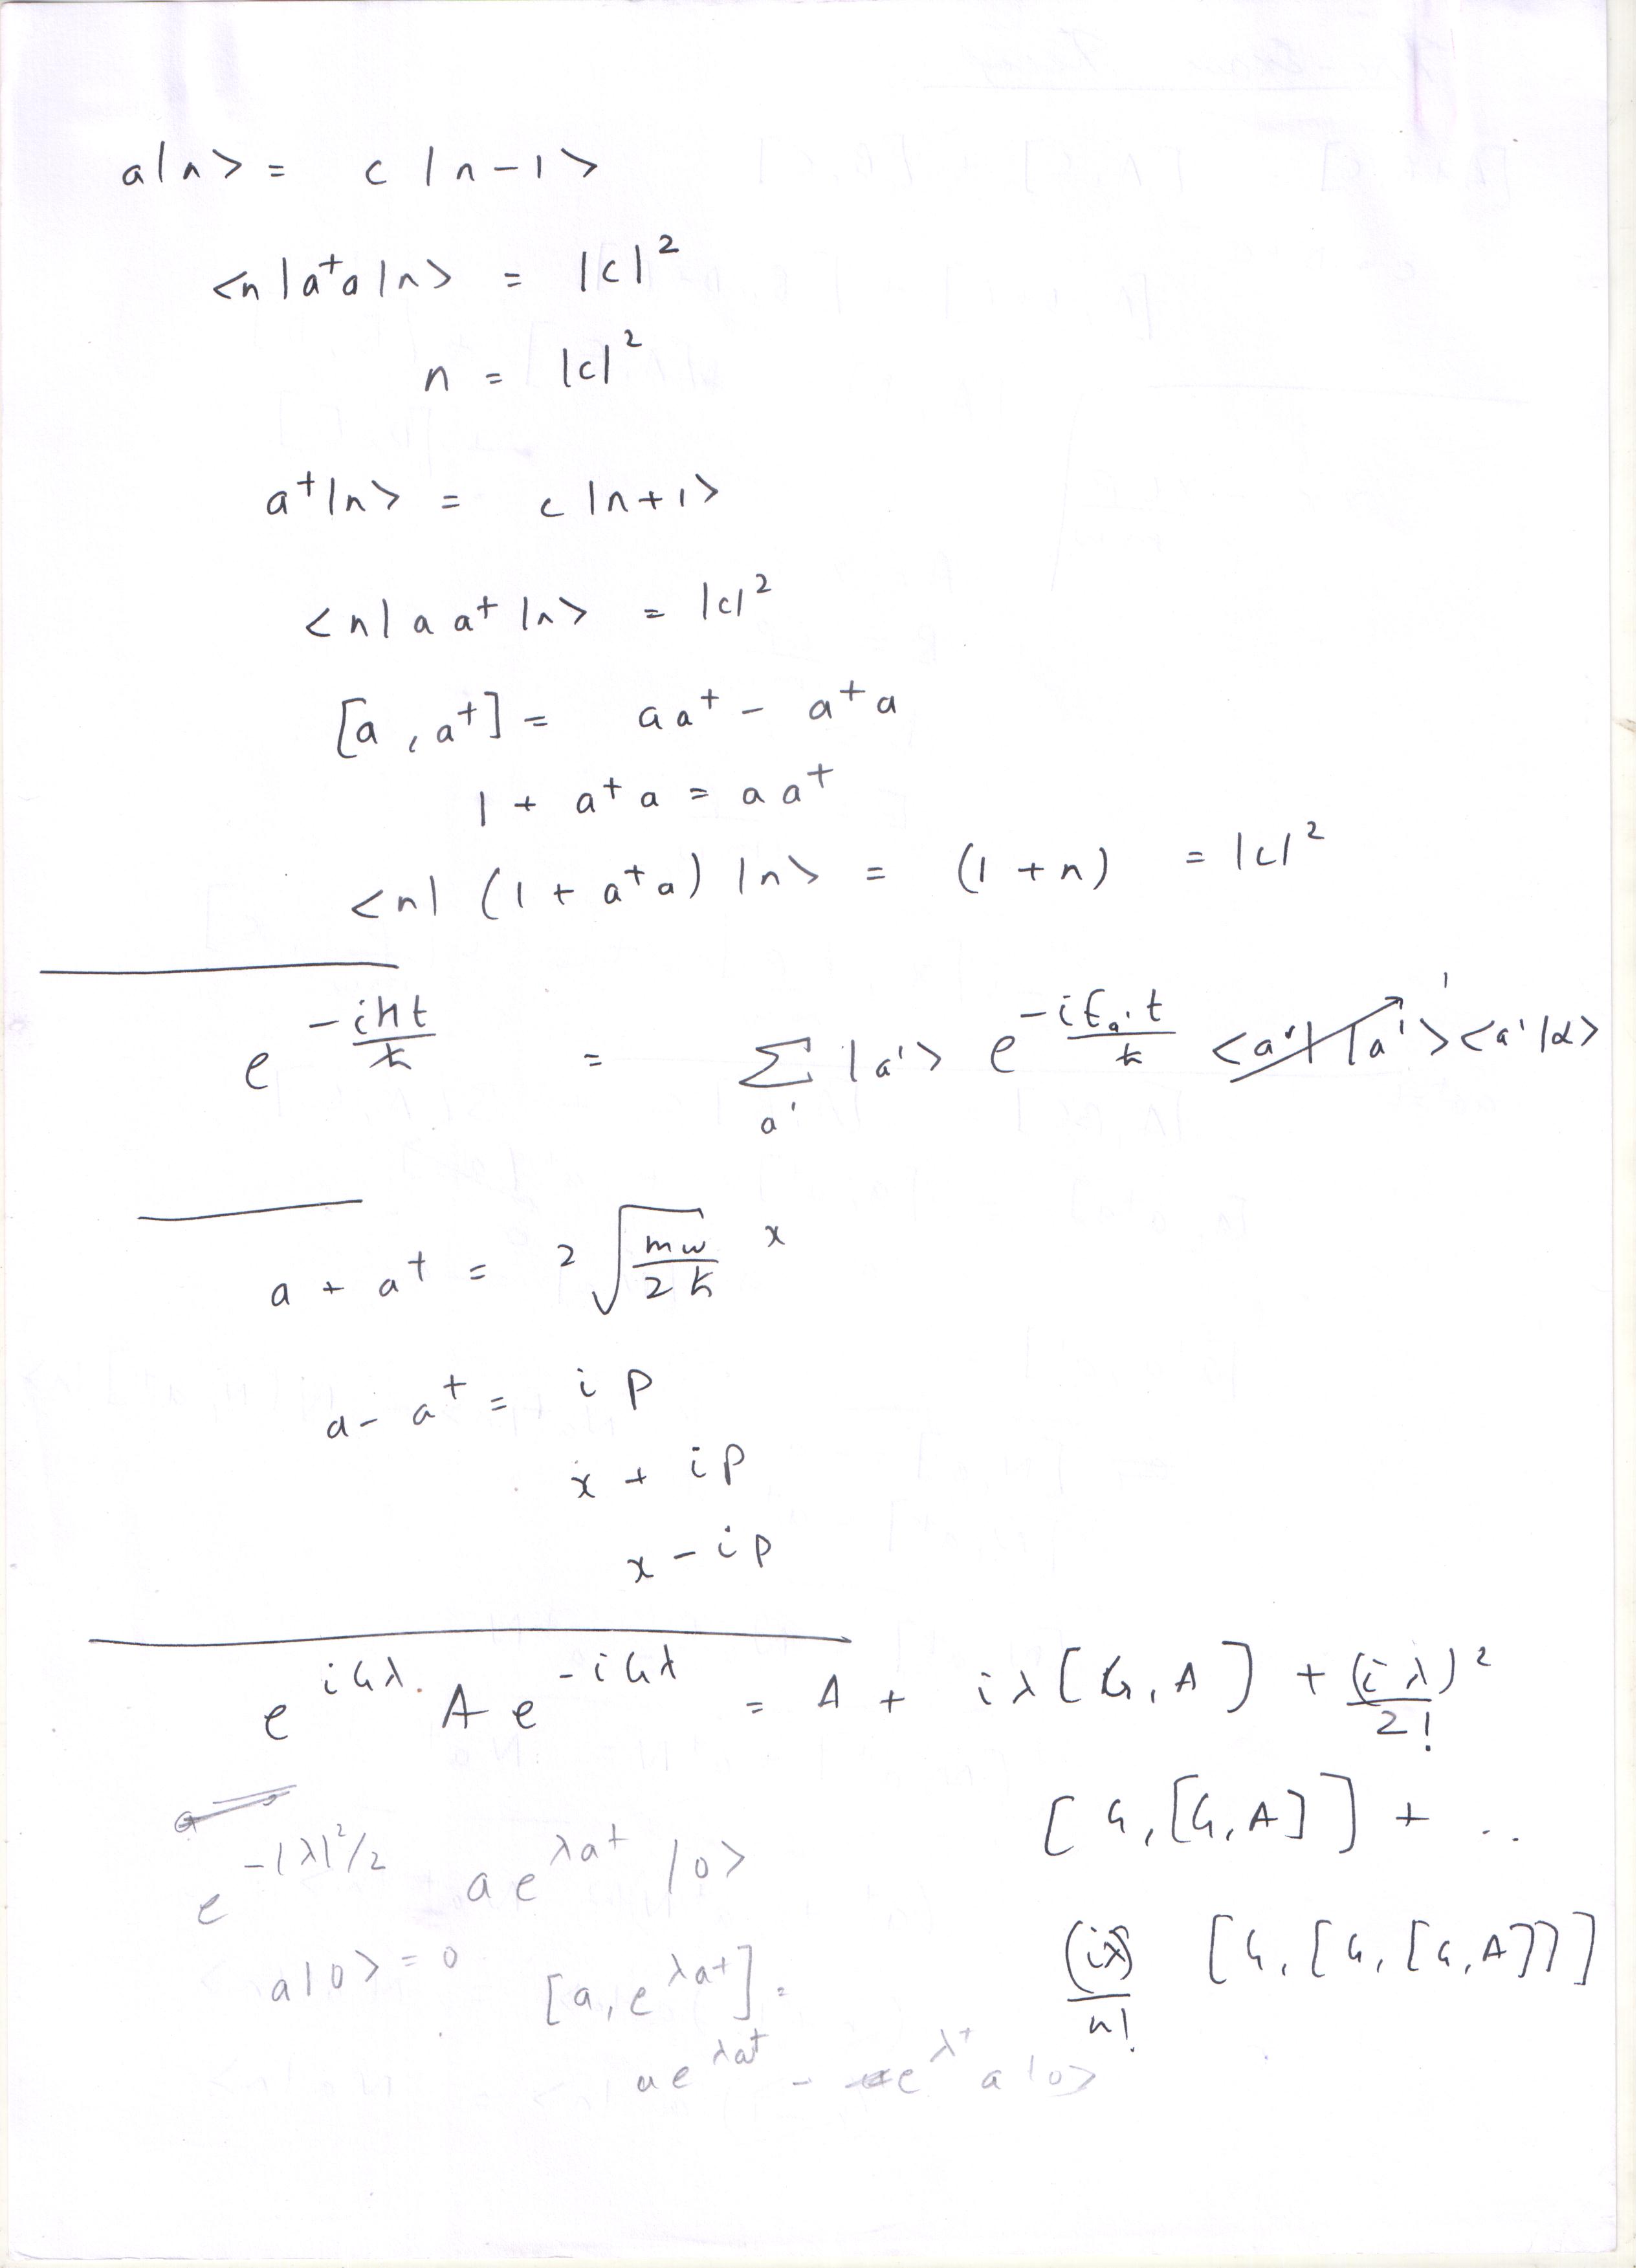 a|n> = c |n-1>
<n|a⁺a|n> = |c|²
n = |c|²
a⁺|n> = c |n+1>
<n| a a⁺ |n> = |c|²
[a, a⁺] = aa⁺ - a⁺a
1 + a⁺a = aa⁺
<n| (1 + a⁺a) |n> = (1+n) = |c|²
e^{-iHt/ħ} = Σ_{a'} |a'> e^{-iE_{a'}t/ħ} <a'| |a'> ¹ <a'|α>
a + a⁺ = 2 √(mω/2ħ) x
a - a⁺ = i p
x + i p
x - i p
e^{iGλ} A e^{-iGλ} = A + iλ[G, A] + (iλ)²/2!
[G, [G, A]] + ..
e^{-|λ|²/2} a e^{λa⁺} |0>
(iλ)/n! [G, [G, [G, A]]]
a|0> = 0 [a, e^{λa⁺}] =
a e^{λa⁺} - e^{λ⁺} a |0>